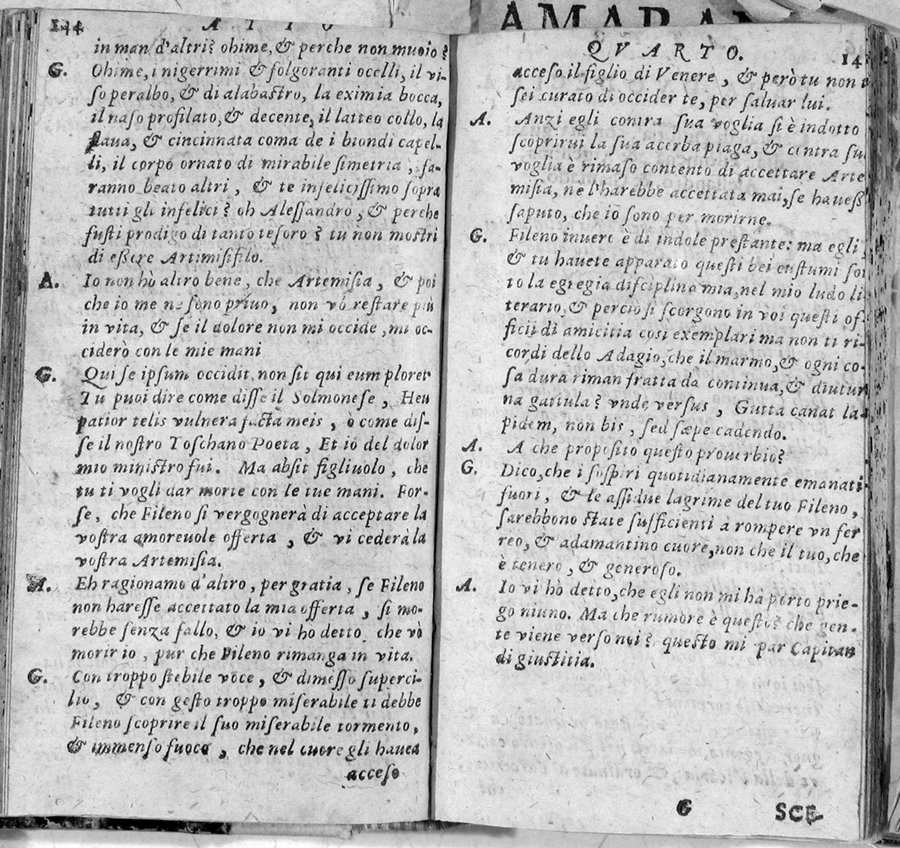 144 ATTO
in man d'altri? ohime, & perche non muoio?
G. Ohime, i nigerrimi & folgoranti ocelli, il vi-
so peralbo, & di alabastro, la eximia bocca,
il naso profilato, & decente, il latteo collo, la
flaua, & cincinnata coma de i biondi capel-
li, il corpo ornato di mirabile simetria, fa-
ranno beato altri, & te infelicissimo sopra
tutti gli infelici? oh Alessandro, & perche
fusti prodigo di tanto tesoro? tu non mostri
di essere Artimisifilo.
A. Io non hò altro bene, che Artemisia, & poi
che io me ne sono priuo, non vò restare più
in vita, & se il dolore non mi occide, mi oc-
ciderò con le mie mani
G. Qui se ipsum occidit, non sit qui eum ploret
Tu puoi dire come disse il Solmonese, Heu
patior telis vulnera facta meis, ò come dis-
se il nostro Toschano Poeta, Et io del dolor
mio ministro fui. Ma absit figliuolo, che
tu ti vogli dar morte con le tue mani. For-
se, che Fileno si vergognerà di acceptare la
vostra amoreuole offerta, & vi cederà la
vostra Artemisia.
A. Eh ragionamo d'altro, per gratia, se Fileno
non haresse accettato la mia offerta, si mo-
rebbe senza fallo, & io vi ho detto, che vò
morir io, pur che Fileno rimanga in vita.
G. Con troppo flebile voce, & dimesso superci-
lio, & con gesto troppo miserabile ti debbe
Fileno scoprire il suo miserabile tormento,
& immenso fuoco, che nel cuore gli hauea
acceso
AMARAN
QVARTO. 14
acceso il figlio di Venere, & però tu non ti
sei curato di occider te, per saluar lui.
A. Anzi egli contra sua voglia si è indotto
scoprirui la sua acerba piaga, & contra sua
voglia è rimaso contento di accettare Arte
misia, ne l'harebbe accettata mai, se hauess
saputo, che io sono per morirne.
G. Fileno inuero è di indole prestante: ma egli,
& tu hauete apparato questi bei custumi sot
to la egregia disciplina mia, nel mio ludo li
terario, & perciò si scorgono in voi questi of
ficij di amicitia così exemplari ma non ti ri-
cordi dello Adagio, che il marmo, & ogni co-
sa dura riman fratta da continua, & diutur
na gattula? vnde versus, Gutta cauat la-
pidem, non bis, sed sæpe cadendo.
A. A che proposito questo prouerbio?
G. Dico, che i sospiri quotidianamente emanati
fuori, & le assidue lagrime del tuo Fileno,
sarebbono state sufficienti à rompere vn fer
reo, & adamantino cuore, non che il tuo, che
è tenero, & generoso.
A. Io vi hò detto, che egli non mi hà porto prie-
go niuno. Ma che rumore è questo? che gen-
te viene verso noi? questo mi par Capitan
di giustitia.
G SCE-